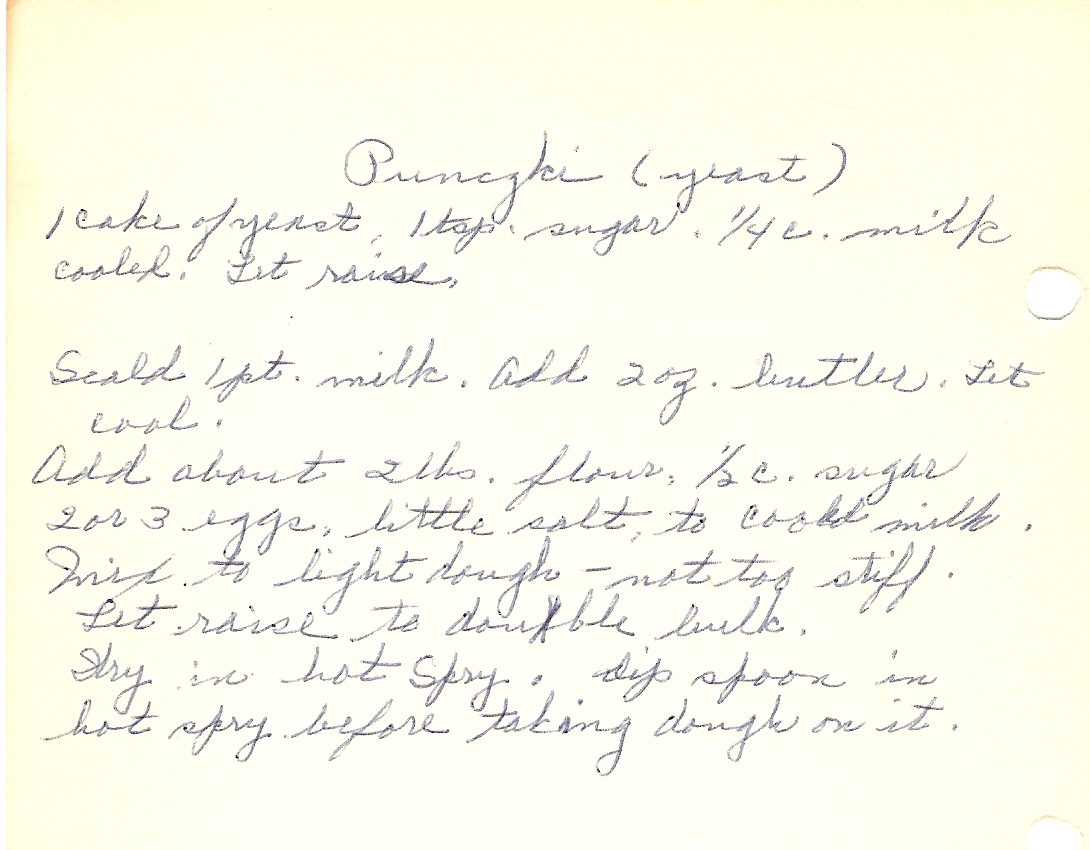 Punczki (yeast)
1 cake of yeast, 1 tsp. sugar. 1/4 c. milk
cooled. Let raise.
Scald 1 pt. milk. Add 2 oz. butter. Let
cool.
Add about 2 lbs. flour, 1/2 c. sugar
2 or 3 eggs, little salt, to coold milk.
Mix to light dough - not too stiff.
Let raise to double bulk.
Fry in hot Spry. Dip spoon in
hot spry before taking dough on it.